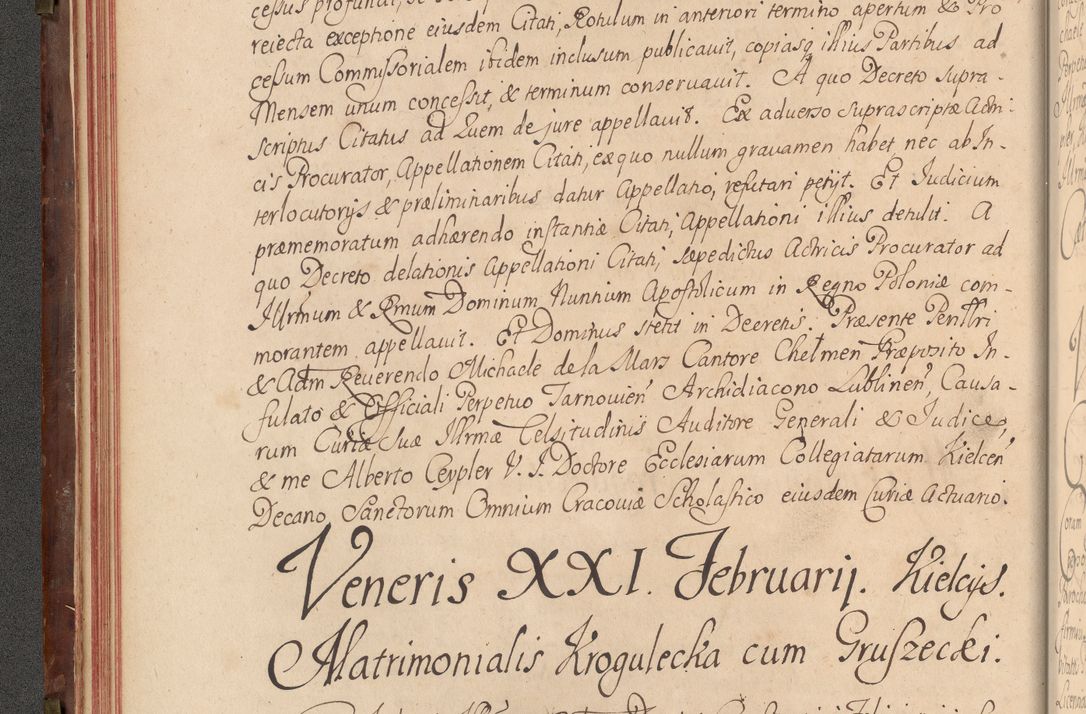 reiecta exceptione eiusdem Citati, Rotulum in anteriori termino apertum & Pro
cessum Commissorialem ibidem inclusum publicavit, copiasq illius Partibus ad
Mensem unum concessit, & terminum conservavit. A quo Decreto supra-
scriptus Citatus ad Quem de jure appellavit. Ex adverso suprascriptæ Actri-
cis Procurator, Appellationem Citati, ex quo nullum gravamen habet nec ab In-
terlocutorijs & præliminaribus datur Appellatio, refutari petijt. Et Judicium
præmemoratum adhærendo instantiæ Citati, Appellationi illius detulit. A
quo Decreto delationis Appellationi Citati, sæpedictus Actricis Procurator ad
Illrmum & Rmum Dominum Nuntium Apostolicum in Regno Poloniæ com-
morantem appellavit. Et Dominus stetit in Decretis. Præsente Perillri
& Adm Reverendo Michaele de la Mars Cantore Chelmen Præposito In-
fulato & Officiali Perpetuo Tarnovien Archidiacono Lublinen, Causa-
rum Curiæ Suæ Illrmæ Celsitudinis Auditore Generali & Judice,
& me Alberto Ceypler V. J. Doctore Ecclesiarum Collegiatarum Kielcen
Decano Sanctorum Omnium Cracoviæ Scholastico eiusdem Curiæ Actuario.
Veneris XXI. Februarij. Kielcijs.
Matrimonialis Krogulecka cum Gruszecki.